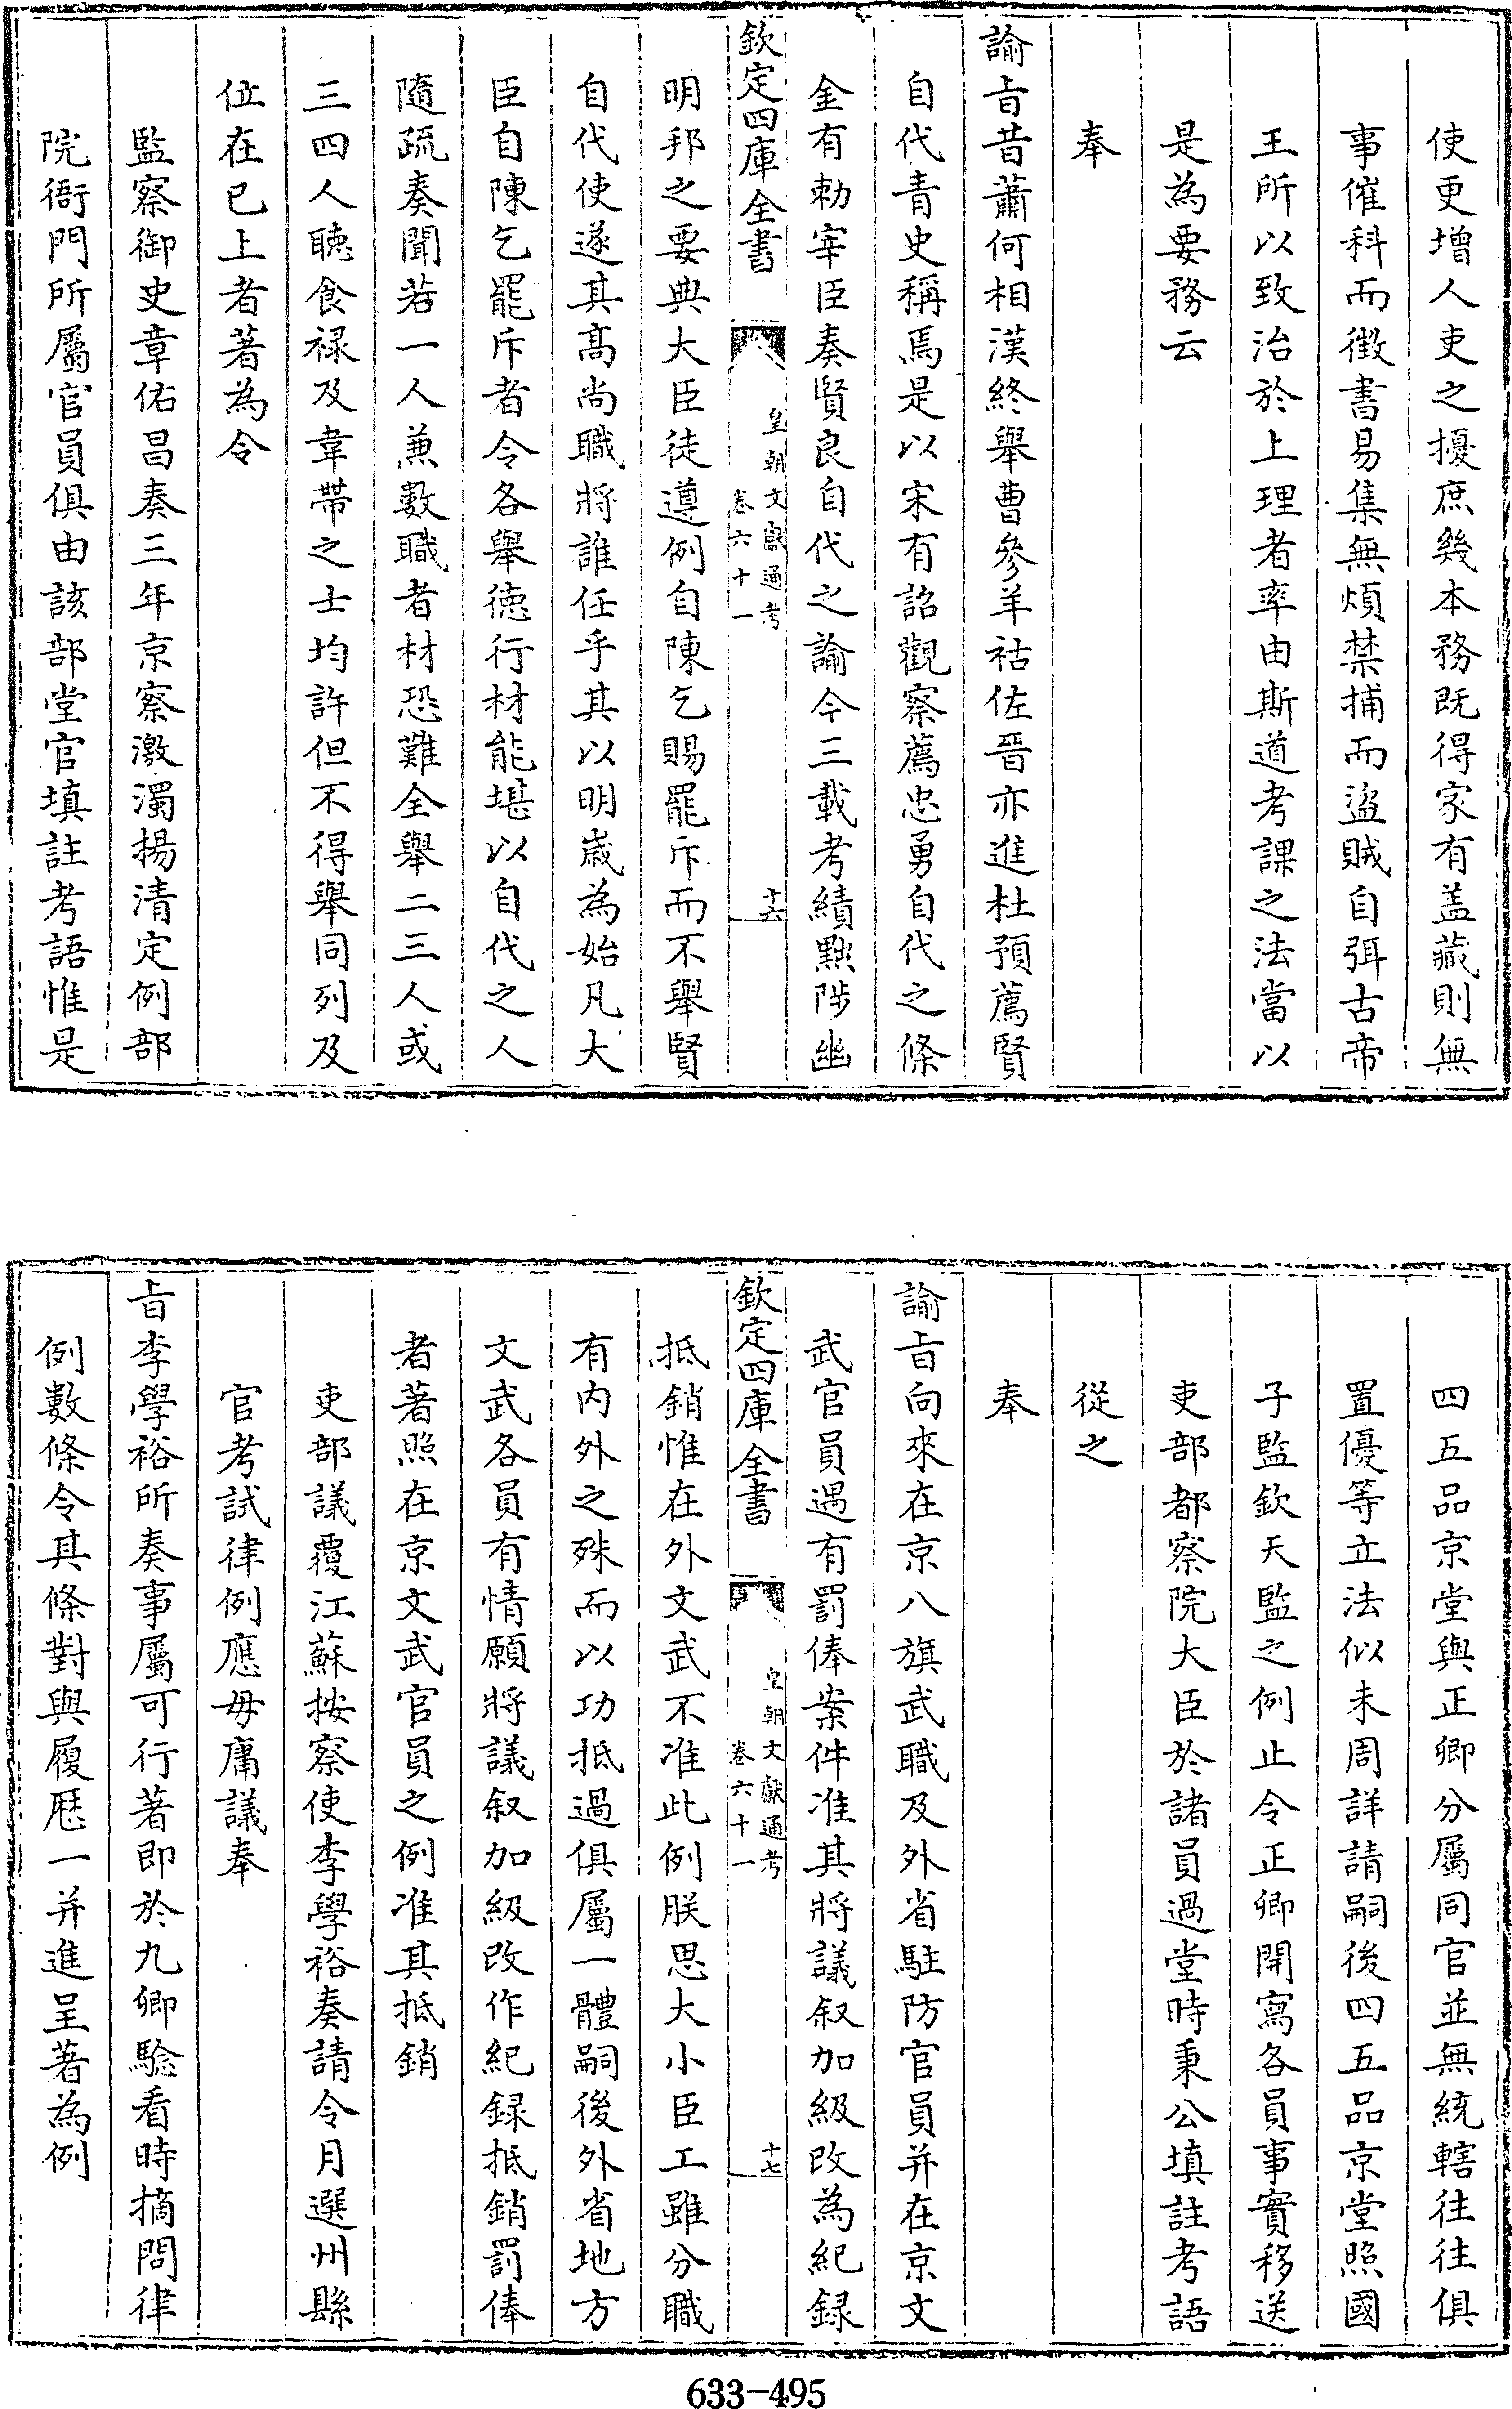 使更增人吏之擾庶幾本務既得家有盖藏則無
事催科而徵書易集無煩禁捕而盜賊自弭古帝
王所以致治於上理者率由斯道考課之法當以
是為要務云
奉
諭旨昔蕭何相漢終舉曹參羊祜佐晉亦進杜預薦賢
自代青史稱焉是以宋有詔觀察薦忠勇自代之條
金有勅宰臣奏賢良自代之諭今三載考績黜陟幽
欽定四庫全書
皇朝文獻通考
卷六十一
十六
明邦之要典大臣徒遵例自陳乞賜罷斥而不舉賢
自代使遂其高尚職將誰任乎其以明歲為始凡大
臣自陳乞罷斥者令各舉德行材能堪以自代之人
隨疏奏聞若一人兼數職者材恐難全舉二三人或
三四人聽食祿及韋帶之士均許但不得舉同列及
位在已上者著為令
監察御史章佑昌奏三年京察激濁揚清定例部
院衙門所屬官員俱由該部堂官填註考語惟是
四五品京堂與正卿分屬同官並無統轄往往俱
置優等立法似未周詳請嗣後四五品京堂照國
子監欽天監之例止令正卿開寫各員事實移送
吏部都察院大臣於諸員過堂時秉公填註考語
從之
奉
諭旨向來在京八旗武職及外省駐防官員并在京文
武官員遇有罰俸案件准其將議叙加級改為紀録
欽定四庫全書
皇朝文獻通考
卷六十一
十七
抵銷惟在外文武不准此例朕思大小臣工雖分職
有内外之殊而以功抵過俱屬一體嗣後外省地方
文武各員有情願將議叙加級改作紀録抵銷罰俸
者著照在京文武官員之例准其抵銷
吏部議覆江蘇按察使李學裕奏請令月選州縣
官考試律例應毋庸議奉
旨李學裕所奏事屬可行著即於九卿騐看時摘問律
例數條令其條對與履歷一并進呈著為例
633-495